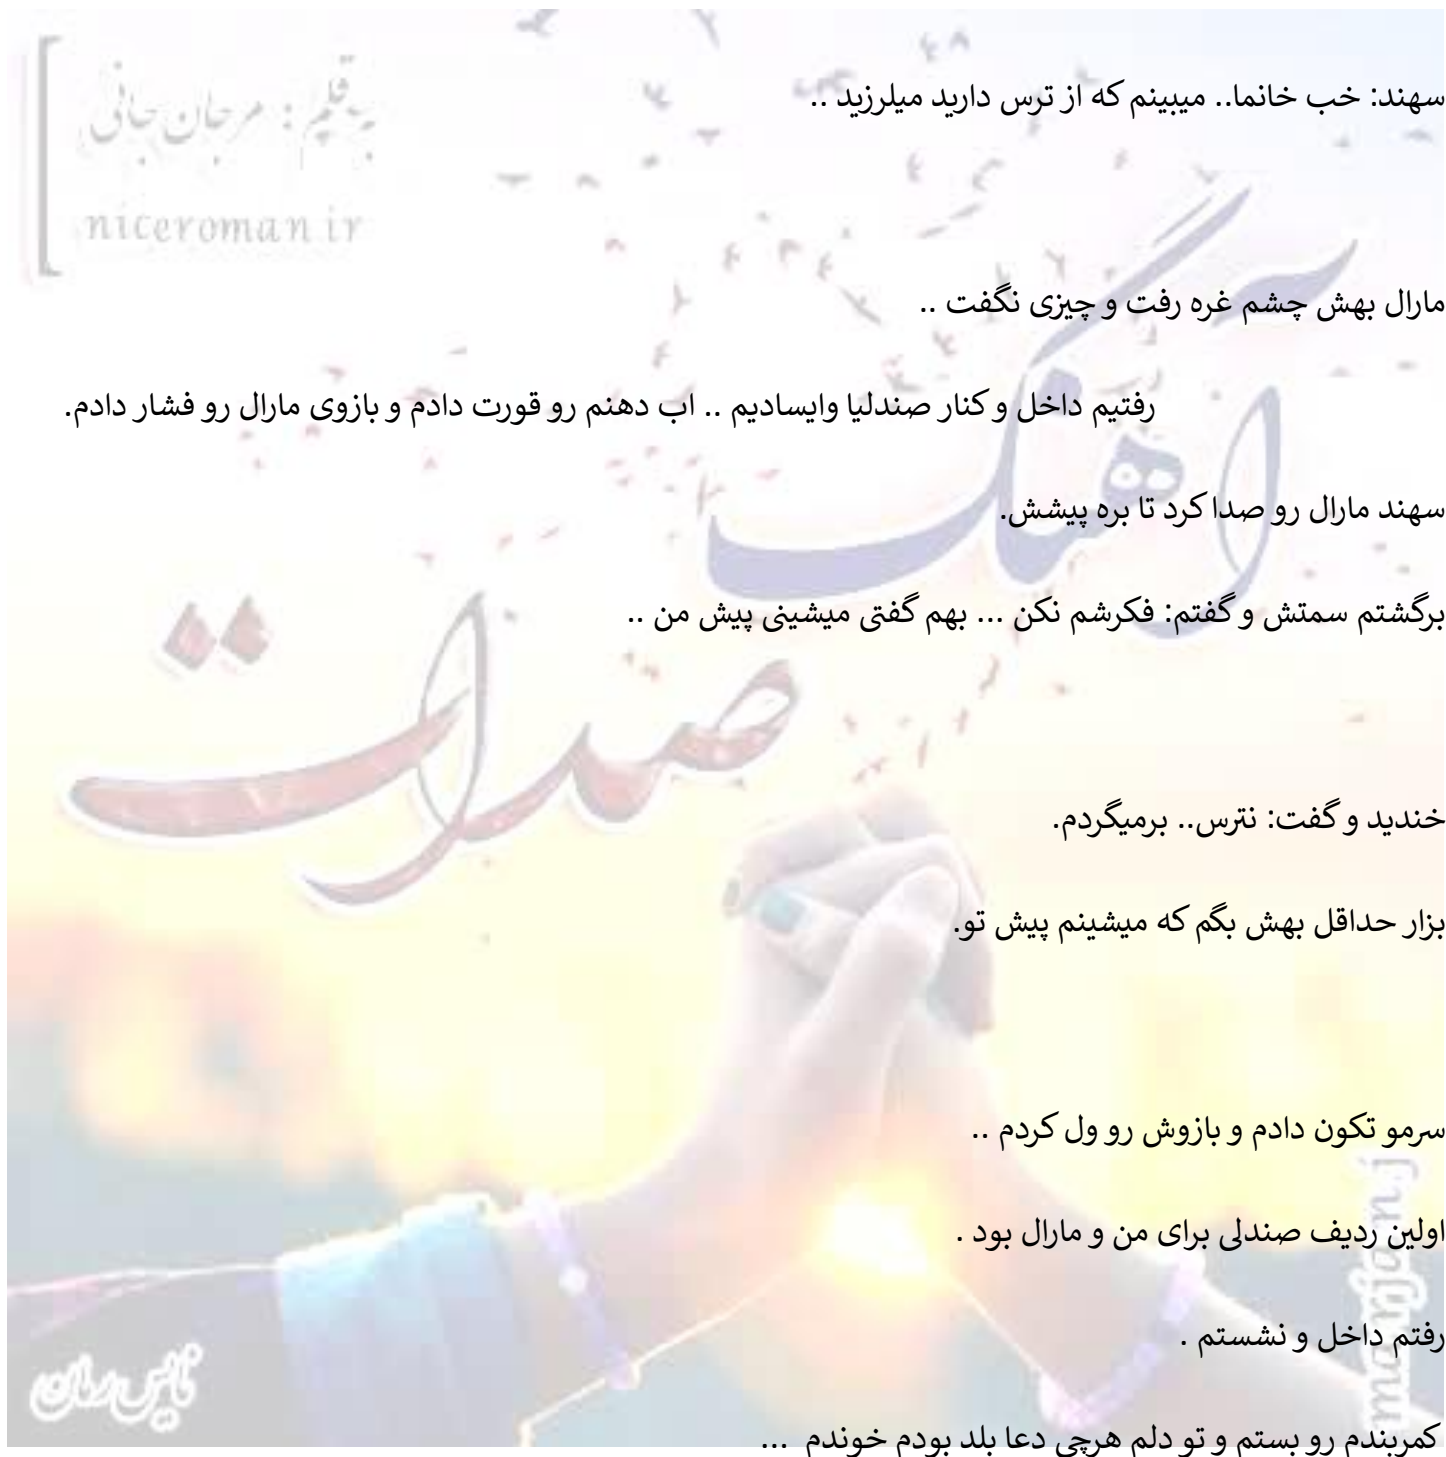 به قلم : مرجان جانی
niceroman.ir
سهند: خب خانما.. میبینم که از ترس دارید میلرزید ..
مارال بهش چشم غره رفت و چیزی نگفت ..
رفتیم داخل و کنار صندلیا وایسادیم .. اب دهنم رو قورت دادم و بازوی مارال رو فشار دادم.
آهنگ
سهند مارال رو صدا کرد تا بره پیشش.
برگشتم سمتش و گفتم: فکرشم نکن ... بهم گفتی میشینی پیش من ..
صدات
خندید و گفت: نترس.. برمیگردم.
بزار حداقل بهش بگم که میشینم پیش تو.
سرمو تکون دادم و بازوش رو ول کردم ..
اولین ردیف صندلی برای من و مارال بود .
رفتم داخل و نشستم .
marjan.j
نایس رمان
کمربندم رو بستم و تو دلم هرچی دعا بلد بودم خوندم ...